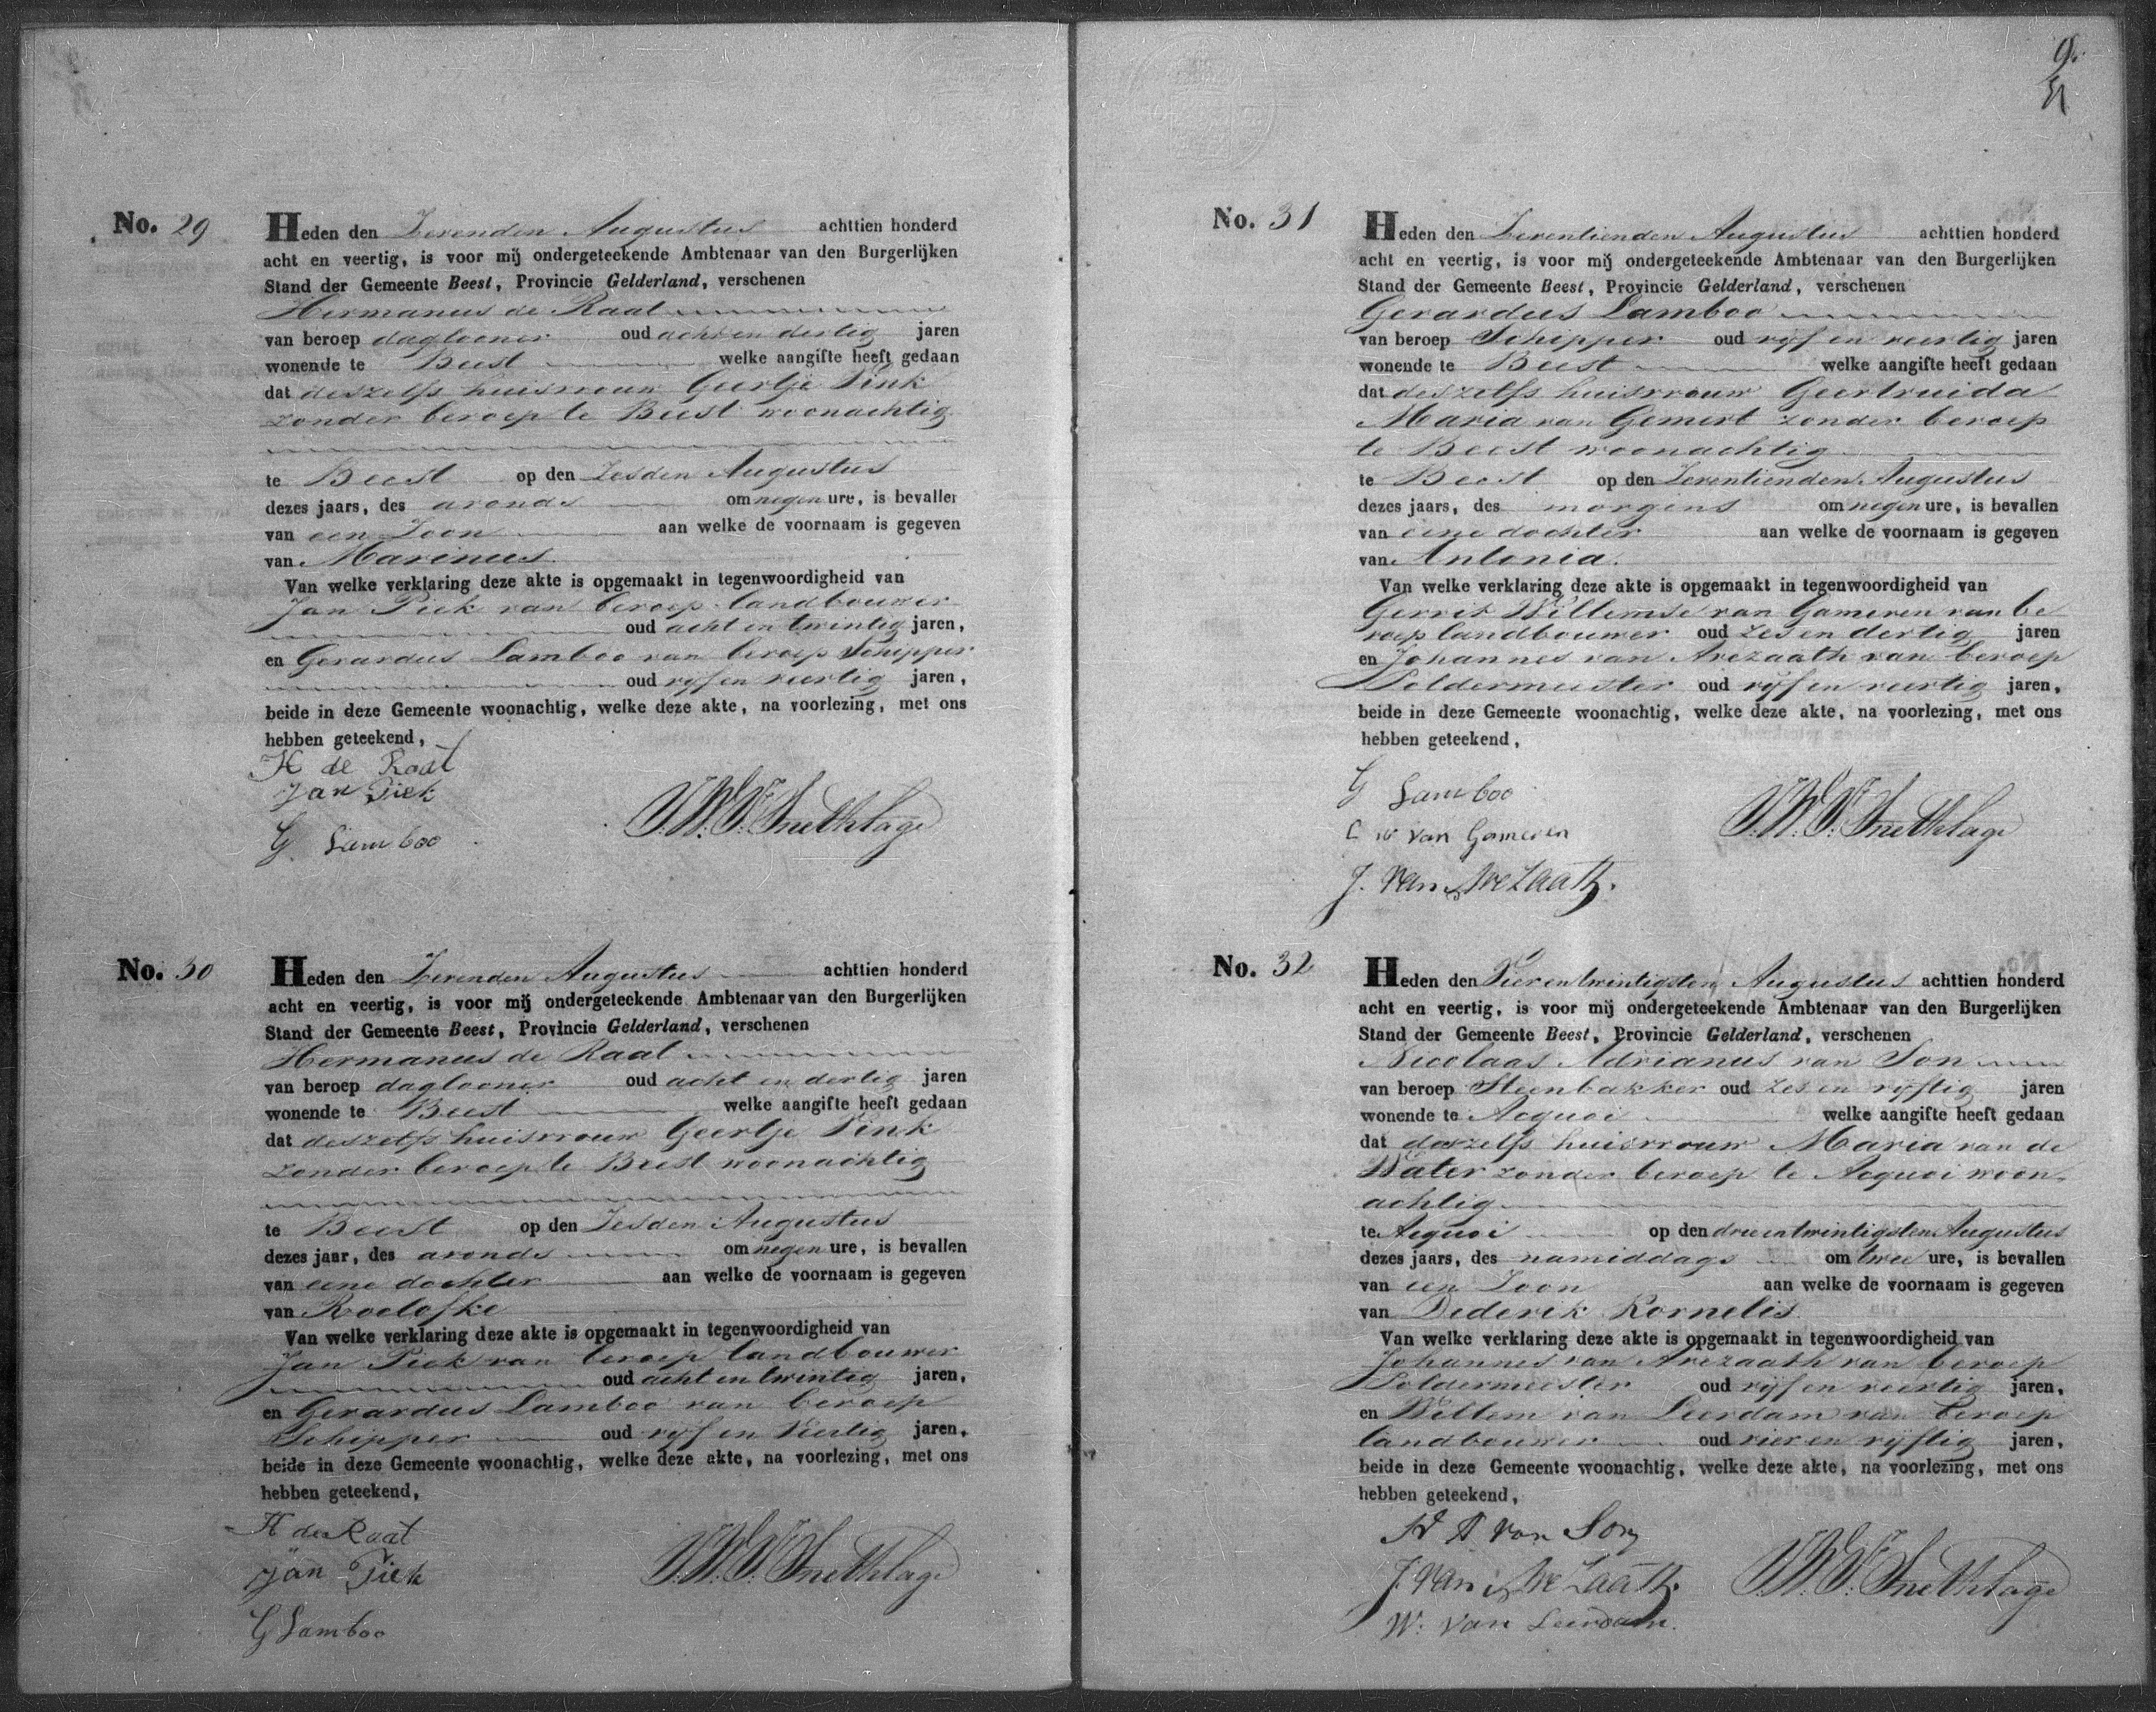 No. 29
Heden den Zevenden Augustus achttien honderd
acht en veertig, is voor mij ondergeteekende Ambtenaar van den Burgerlijken
Stand der Gemeente Beest, Provincie Gelderland, verschenen
Hermanus de Raat
van beroep daglooner oud acht en dertig jaren
wonende te Beest welke aangifte heeft gedaan
dat deszelfs huisvrouw Geertje Pink
zonder beroep te Beest woonachtig
te Beest op den Zesden Augustus
dezes jaars, des avonds om negen ure, is bevallen
van een Zoon aan welke de voornaam is gegeven
van Marinus
Van welke verklaring deze akte is opgemaakt in tegenwoordigheid van
Jan Piek van beroep landbouwer
oud acht en twintig jaren,
en Gerardus Lamboo van beroep Schipper
oud vijf en veertig jaren,
beide in deze Gemeente woonachtig, welke deze akte, na voorlezing, met ons
hebben geteekend,
H de Raat
Jan Piek
G Lamboo
J.W.F. Snethlage
No. 30
Heden den Zevenden Augustus achttien honderd
acht en veertig, is voor mij ondergeteekende Ambtenaar van den Burgerlijken
Stand der Gemeente Beest, Provincie Gelderland, verschenen
Hermanus de Raat
van beroep daglooner oud acht en dertig jaren
wonende te Beest welke aangifte heeft gedaan
dat deszelfs huisvrouw Geertje Pink
zonder beroep te Beest woonachtig
te Beest op den Zesden Augustus
dezes jaar, des avonds om negen ure, is bevallen
van eene dochter aan welke de voornaam is gegeven
van Roelofke
Van welke verklaring deze akte is opgemaakt in tegenwoordigheid van
Jan Piek van beroep landbouwer
oud acht en twintig jaren,
en Gerardus Lamboo van beroep
Schipper oud vijf en Veertig jaren,
beide in deze Gemeente woonachtig, welke deze akte, na voorlezing, met ons
hebben geteekend,
H de Raat
Jan Piek
G Lamboo
J.W.F. Snethlage
9.
No. 31
Heden den Zeventienden Augustus achttien honderd
acht en veertig, is voor mij ondergeteekende Ambtenaar van den Burgerlijken
Stand der Gemeente Beest, Provincie Gelderland, verschenen
Gerardus Lamboo
van beroep Schipper oud vijf en veertig jaren
wonende te Beest welke aangifte heeft gedaan
dat deszelfs huisvrouw Geertruida
Maria van Gemert zonder beroep
te Beest woonachtig
te Beest op den Zeventienden Augustus
dezes jaars, des morgens om negen ure, is bevallen
van eene dochter aan welke de voornaam is gegeven
van Antonia.
Van welke verklaring deze akte is opgemaakt in tegenwoordigheid van
Gerrit Willemse van Gameren van be
roep landbouwer oud zes en dertig jaren
en Johannes van Avezaath van beroep
Poldermeester oud vijf en veertig jaren,
beide in deze Gemeente woonachtig, welke deze akte, na voorlezing, met ons
hebben geteekend,
G Lamboo
w van Gameren
J. van Avezaath.
J.W.F. Snethlage
No. 32
Heden den Vierentwintigsten Augustus achttien honderd
acht en veertig, is voor mij ondergeteekende Ambtenaar van den Burgerlijken
Stand der Gemeente Beest, Provincie Gelderland, verschenen
Nicolaas Adrianus van Son
van beroep Steenbakker oud zes en vijftig jaren
wonende te Acquoi welke aangifte heeft gedaan
dat deszelfs huisvrouw Maria van de
Water zonder beroep te Acquoi woon
achtig
te Acquoi op den drieentwintigsten Augustus
dezes jaars, des namiddags om twee ure, is bevallen
van een Zoon aan welke de voornaam is gegeven
van Dederik Kornelis.
Van welke verklaring deze akte is opgemaakt in tegenwoordigheid van
Johannes van Avezaath van beroep
Poldermeester oud vijf en veertig jaren,
en Willem van Leerdam van beroep
landbouwer oud vier en vijftig jaren,
beide in deze Gemeente woonachtig, welke deze akte, na voorlezing, met ons
hebben geteekend,
N A van Son
J. van Avezaath.
W. van Leerdam.
J.W.F. Snethlage